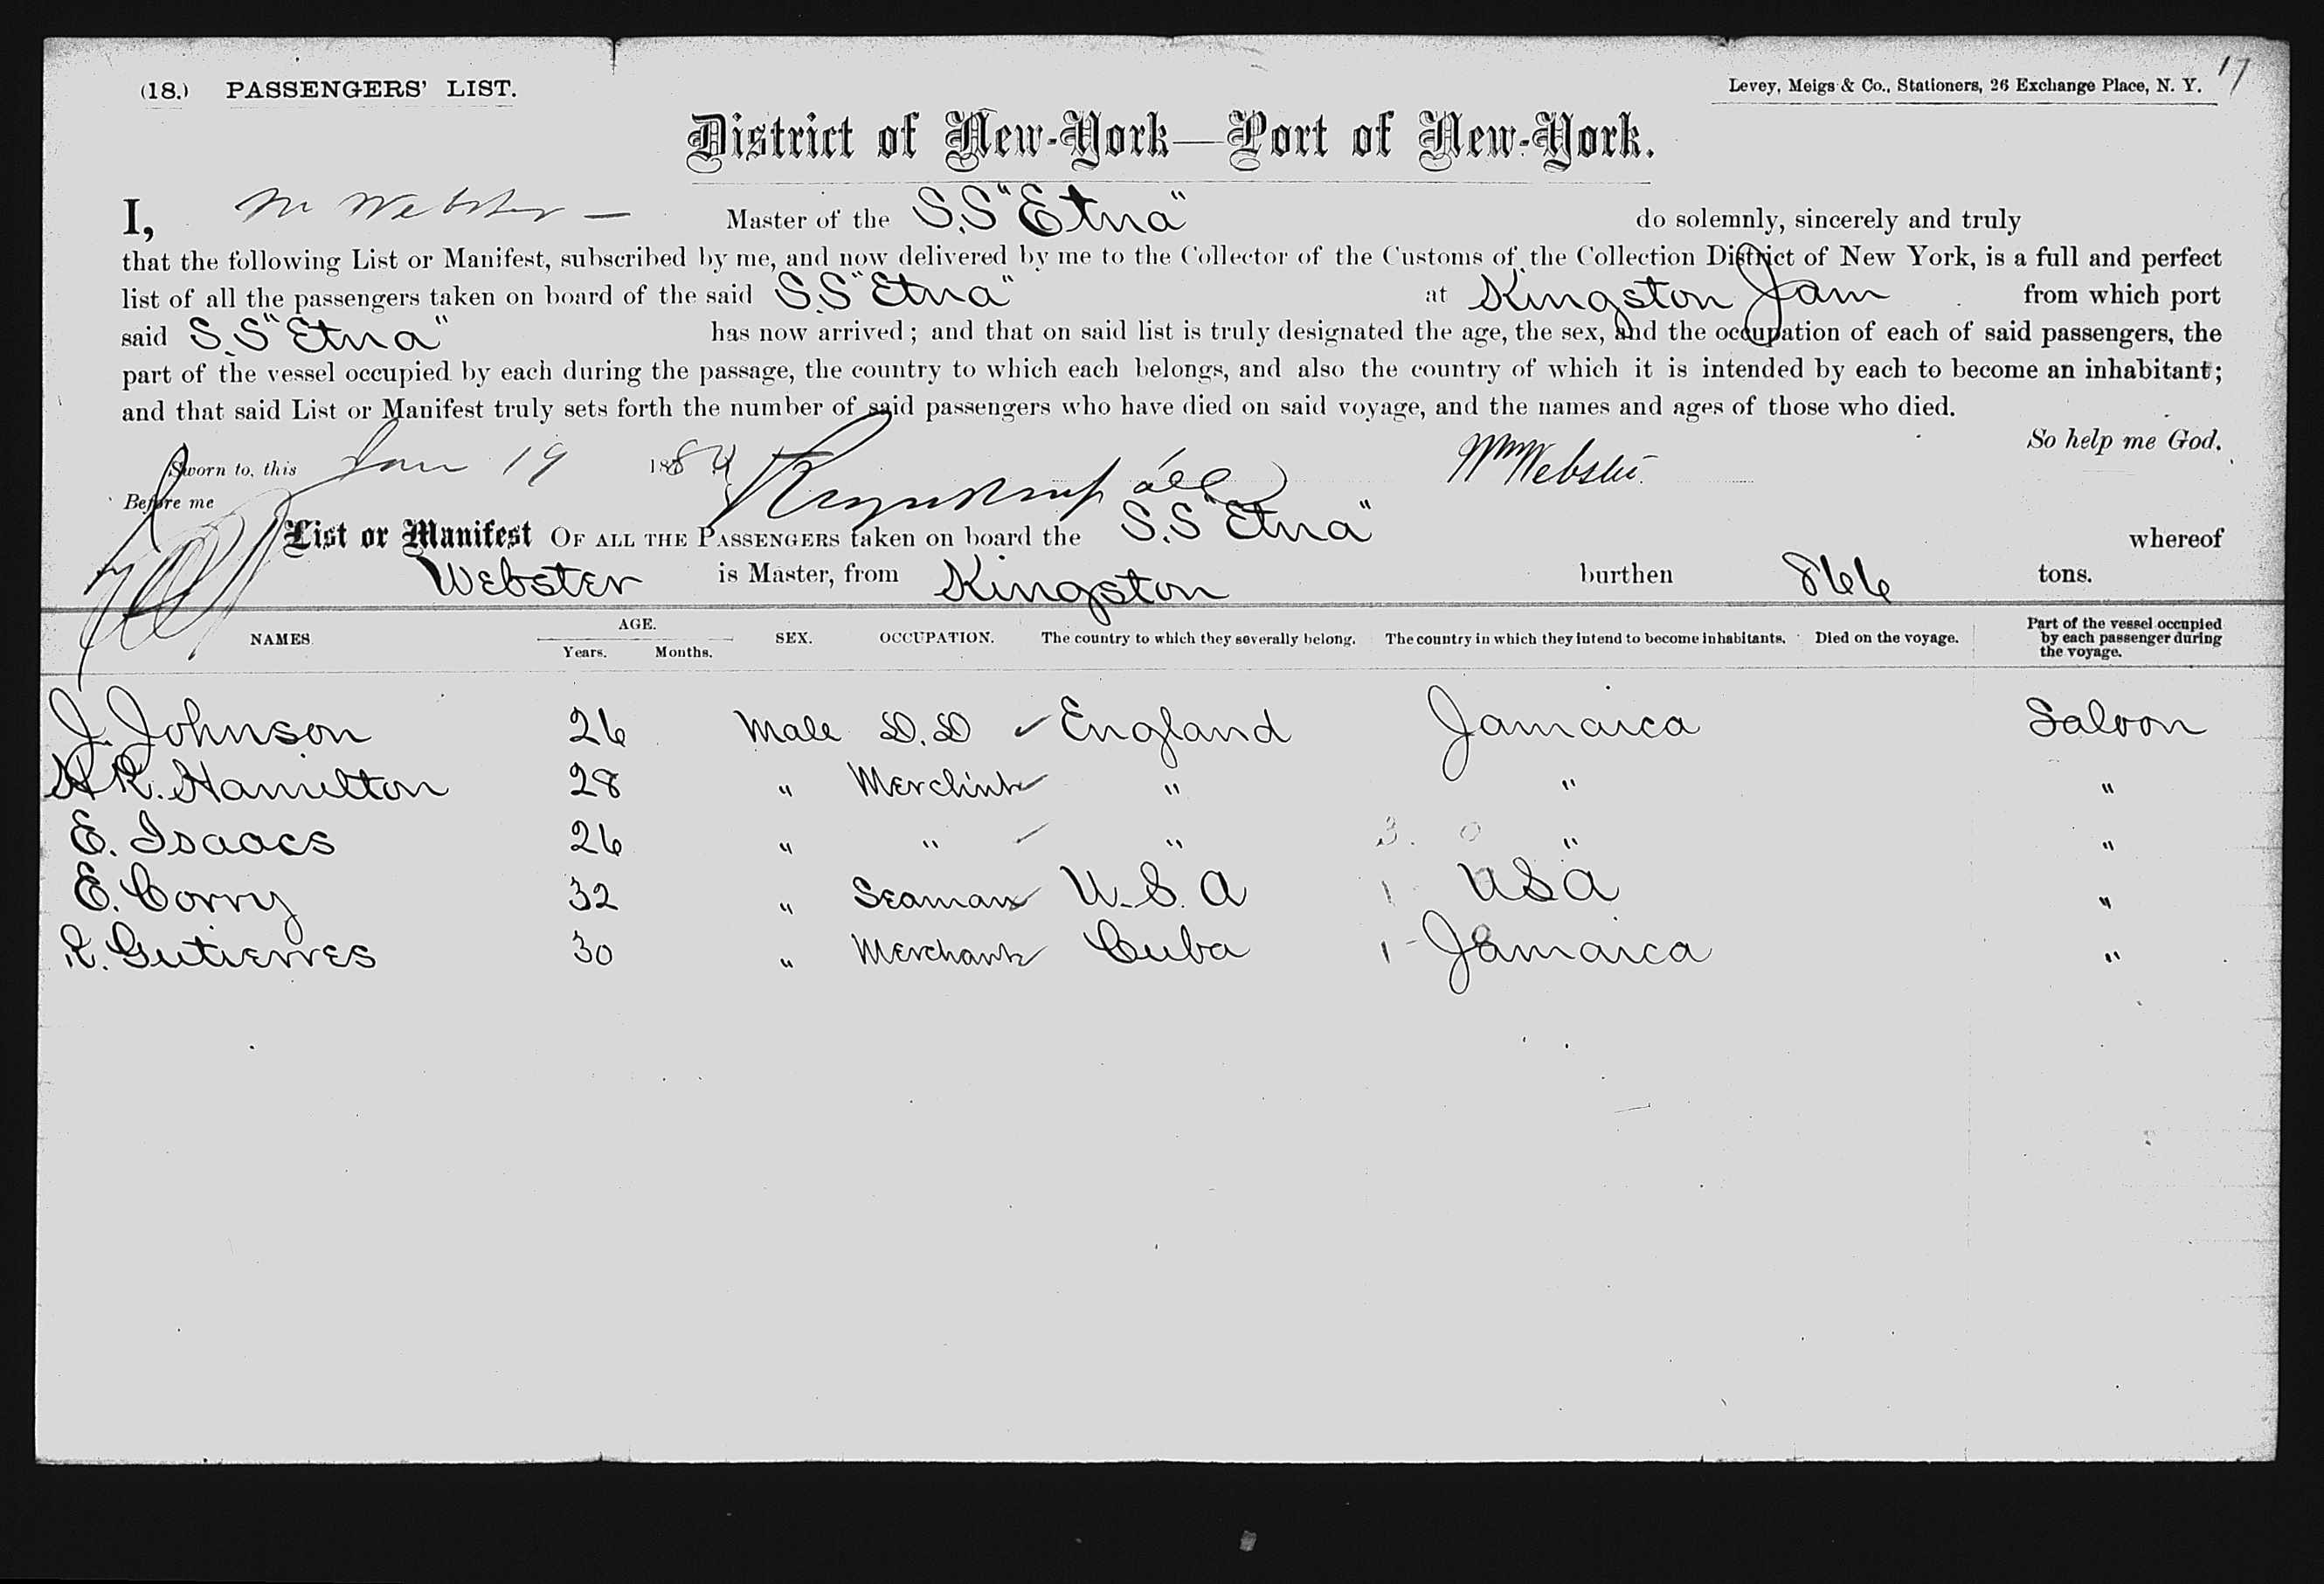 17
(18.) PASSENGERS' LIST. Levey, Meigs & Co., Stationers, 26 Exchange Place, N. Y.
District of New-York—Port of New-York.
I, Wm Webster — Master of the S.S "Etna" do solemnly, sincerely and truly
that the following List or Manifest, subscribed by me, and now delivered by me to the Collector of the Customs of the Collection District of New York, is a full and perfect
list of all the passengers taken on board of the said S.S "Etna" at Kingston Jam from which port
said S.S "Etna" has now arrived; and that on said list is truly designated the age, the sex, and the occupation of each of said passengers, the
part of the vessel occupied by each during the passage, the country to which each belongs, and also the country of which it is intended by each to become an inhabitant;
and that said List or Manifest truly sets forth the number of said passengers who have died on said voyage, and the names and ages of those who died.
So help me God.
Sworn to, this Jan 19 188 Wm Webster
Before me
List or Manifest OF ALL THE PASSENGERS taken on board the S.S "Etna" whereof
Webster is Master, from Kingston burthen 866 tons.
NAMES AGE. Years. Months. SEX. OCCUPATION. The country to which they severally belong. The country in which they intend to become inhabitants. Died on the voyage. Part of the vessel occupied by each passenger during the voyage.
J. Johnson 26 Male D.D England Jamaica Saloon
H R. Hamilton 28 " Merchint " " "
E. Isaacs 26 " " " 3. 0 " "
E. Corry 32 " Seaman U.S.A 1 USA "
R. Gutierres 30 " Merchant Cuba 1 - Jamaica "